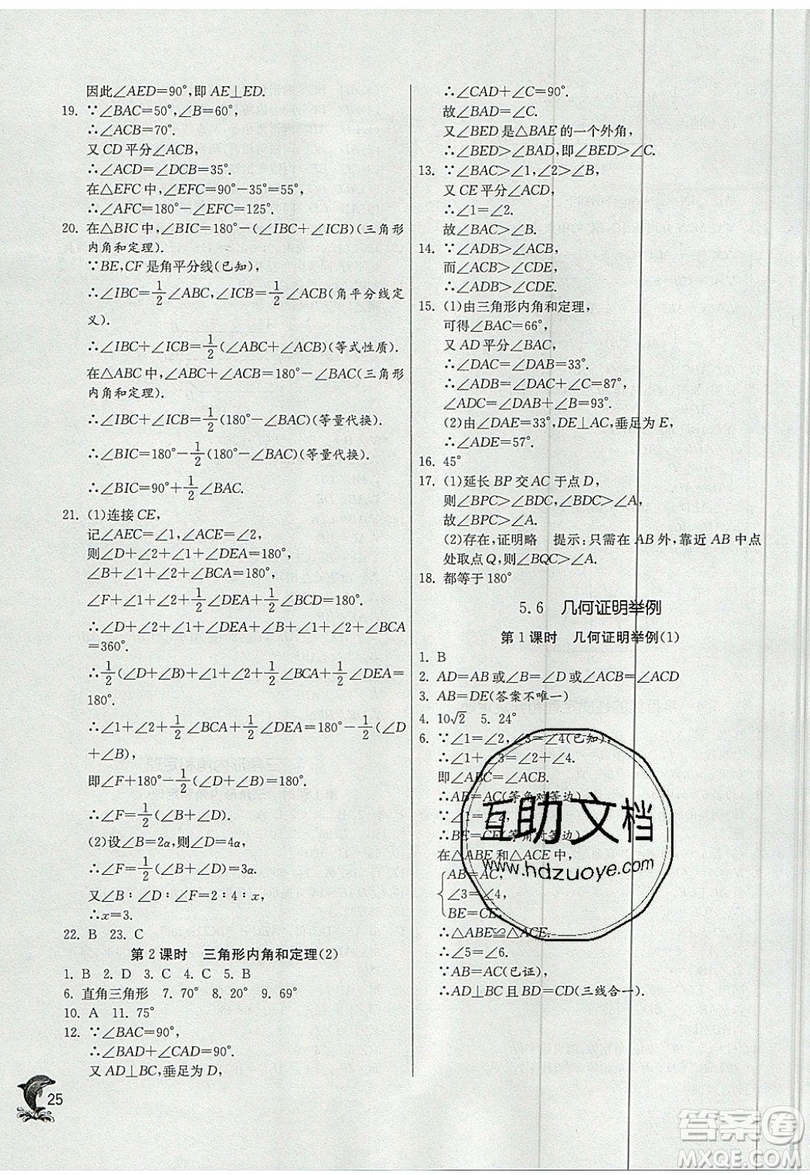 因此∠AED=90°,即 AE⊥ED.
19. ∵∠BAC=50°,∠B=60°,
∴∠ACB=70°.
又 CD 平分∠ACB,
∴∠ACD=∠DCB=35°.
在△EFC 中,∠EFC=90°-35°=55°,
∴∠AFC=180°-∠EFC=125°.
20. 在△BIC 中,∠BIC=180°-(∠IBC+∠ICB)(三角形
内角和定理).
∵BE,CF 是角平分线(已知),
∴∠IBC=1/2∠ABC,∠ICB=1/2∠ACB(角平分线定
义).
∴∠IBC+∠ICB=1/2(∠ABC+∠ACB)(等式性质).
在△ABC 中,∠ABC+∠ACB=180°-∠BAC(三角形
内角和定理)
∴∠IBC+∠ICB=1/2(180°-∠BAC)(等量代换).
∴∠BIC=180°-1/2(180°-∠BAC)(等量代换).
∴∠BIC=90°+1/2∠BAC.
21. (1)连接 CE,
记∠AEC=∠1,∠ACE=∠2,
则∠D+∠2+∠1+∠DEA=180°,
∠B+∠1+∠2+∠BCA=180°,
∠F+∠1+∠2+1/2∠DEA+1/2∠BCA=180°.
∴∠D+∠2+∠1+∠DEA+∠B+∠1+∠2+∠BCA
=360°.
∴1/2(∠D+∠B)+∠1+∠2+1/2∠BCA+1/2∠DEA=
180°.
∴∠1+∠2+1/2∠BCA+1/2∠DEA=180°-1/2(∠D
+∠B),
即∠F+180°-1/2(∠D+∠B)=180°.
∴∠F=1/2(∠D+∠B).
(2)设∠B=2α,则∠D=4α,
∴∠F=1/2(∠B+∠D)=3α.
又∠B∶∠D∶∠F=2∶4∶x,
∴x=3.
22. B 23. C
第 2 课时 三角形内角和定理(2)
1. B 2. D 3. C 4. C 5. B
6. 直角三角形 7. 70° 8. 20° 9. 69°
10. A 11. 75°
12. ∵∠BAC=90°,
∴∠BAD+∠CAD=90°.
又 AD⊥BC,垂足为 D,
25
∴∠CAD+∠C=90°.
故∠BAD=∠C.
又∠BED 是△BAE 的一个外角,
∴∠BED>∠BAD,即∠BED>∠C.
13. ∵∠BAC>∠1,∠2>∠B,
又 CE 平分∠ACD,
∴∠1=∠2.
故∠BAC>∠B.
14. ∵∠ADB>∠ACB,
而∠ACB>∠CDE,
∴∠ADB>∠CDE.
15. (1)由三角形内角和定理,
可得∠BAC=66°,
又 AD 平分∠BAC,
∴∠DAC=∠DAB=33°.
∴∠ADB=∠DAC+∠C=87°,
∠ADC=∠DAB+∠B=93°.
(2)由∠DAE=33°,DE⊥AC,垂足为 E,
∴∠ADE=57°.
16. 45°
17. (1)延长 BP 交 AC 于点 D,
则∠BPC>∠BDC,∠BDC>∠A,
故∠BPC>∠A.
(2)存在,证明略 提示:只需在 AB 外,靠近 AB 中点
处取点 Q,则∠BQC>∠A.
18. 都等于 180°
5.6 几何证明举例
第 1 课时 几何证明举例(1)
1. B
2. AD=AB 或∠B=∠D 或∠ACB=∠ACD
3. AB=DE(答案不唯一)
4. 10√2 5. 24°
6. ∵∠1=∠2,∠3=∠4(已知),
∴∠1+∠3=∠2+∠4.
即∠ABC=∠ACB.
∴AB=AC(等角对等边).
∵∠1=∠2,
∴BE=CE(等角对等边).
在△ABE 和△ACE 中,
AB=AC,
∠3=∠4,
BE=CE,
∴△ABE≌△ACE.
∴∠5=∠6.
∵AB=AC(已证),
∴AD⊥BC 且 BD=CD(三线合一).
互助文档
www.hdzuoye.com
答案圈
MXQE.COM